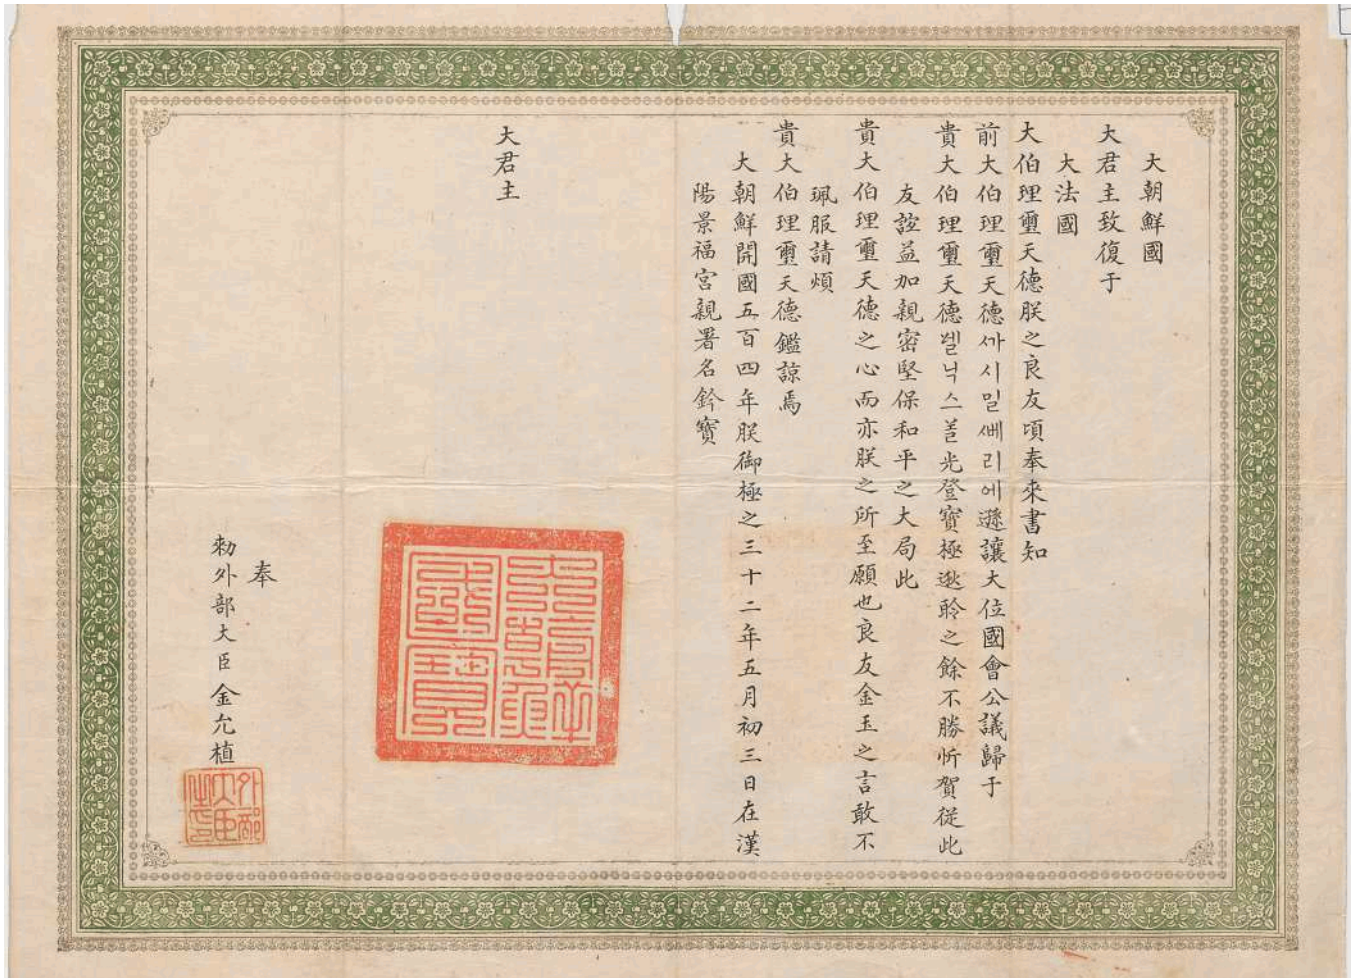 大朝鮮國
大君主致復于
大法國
大伯理璽天德朕之良友頃奉來書知
前大伯理璽天德ᄭᅡ시밀ᄲᅦ리에遜讓大位國會公議歸于
貴大伯理璽天德닉스光登寶極逖聆之餘不勝忻賀從此
友誼益加親密堅保和平之大局此
貴大伯理璽天德之心而亦朕之所至願也良友金玉之言敢不
珮服請煩
貴大伯理璽天德鑑諒焉
大朝鮮開國五百四年朕御極之三十二年五月初三日在漢
陽景福宮親署名鈐寶
大君主
奉
勅外部大臣金允植
外部大臣之印